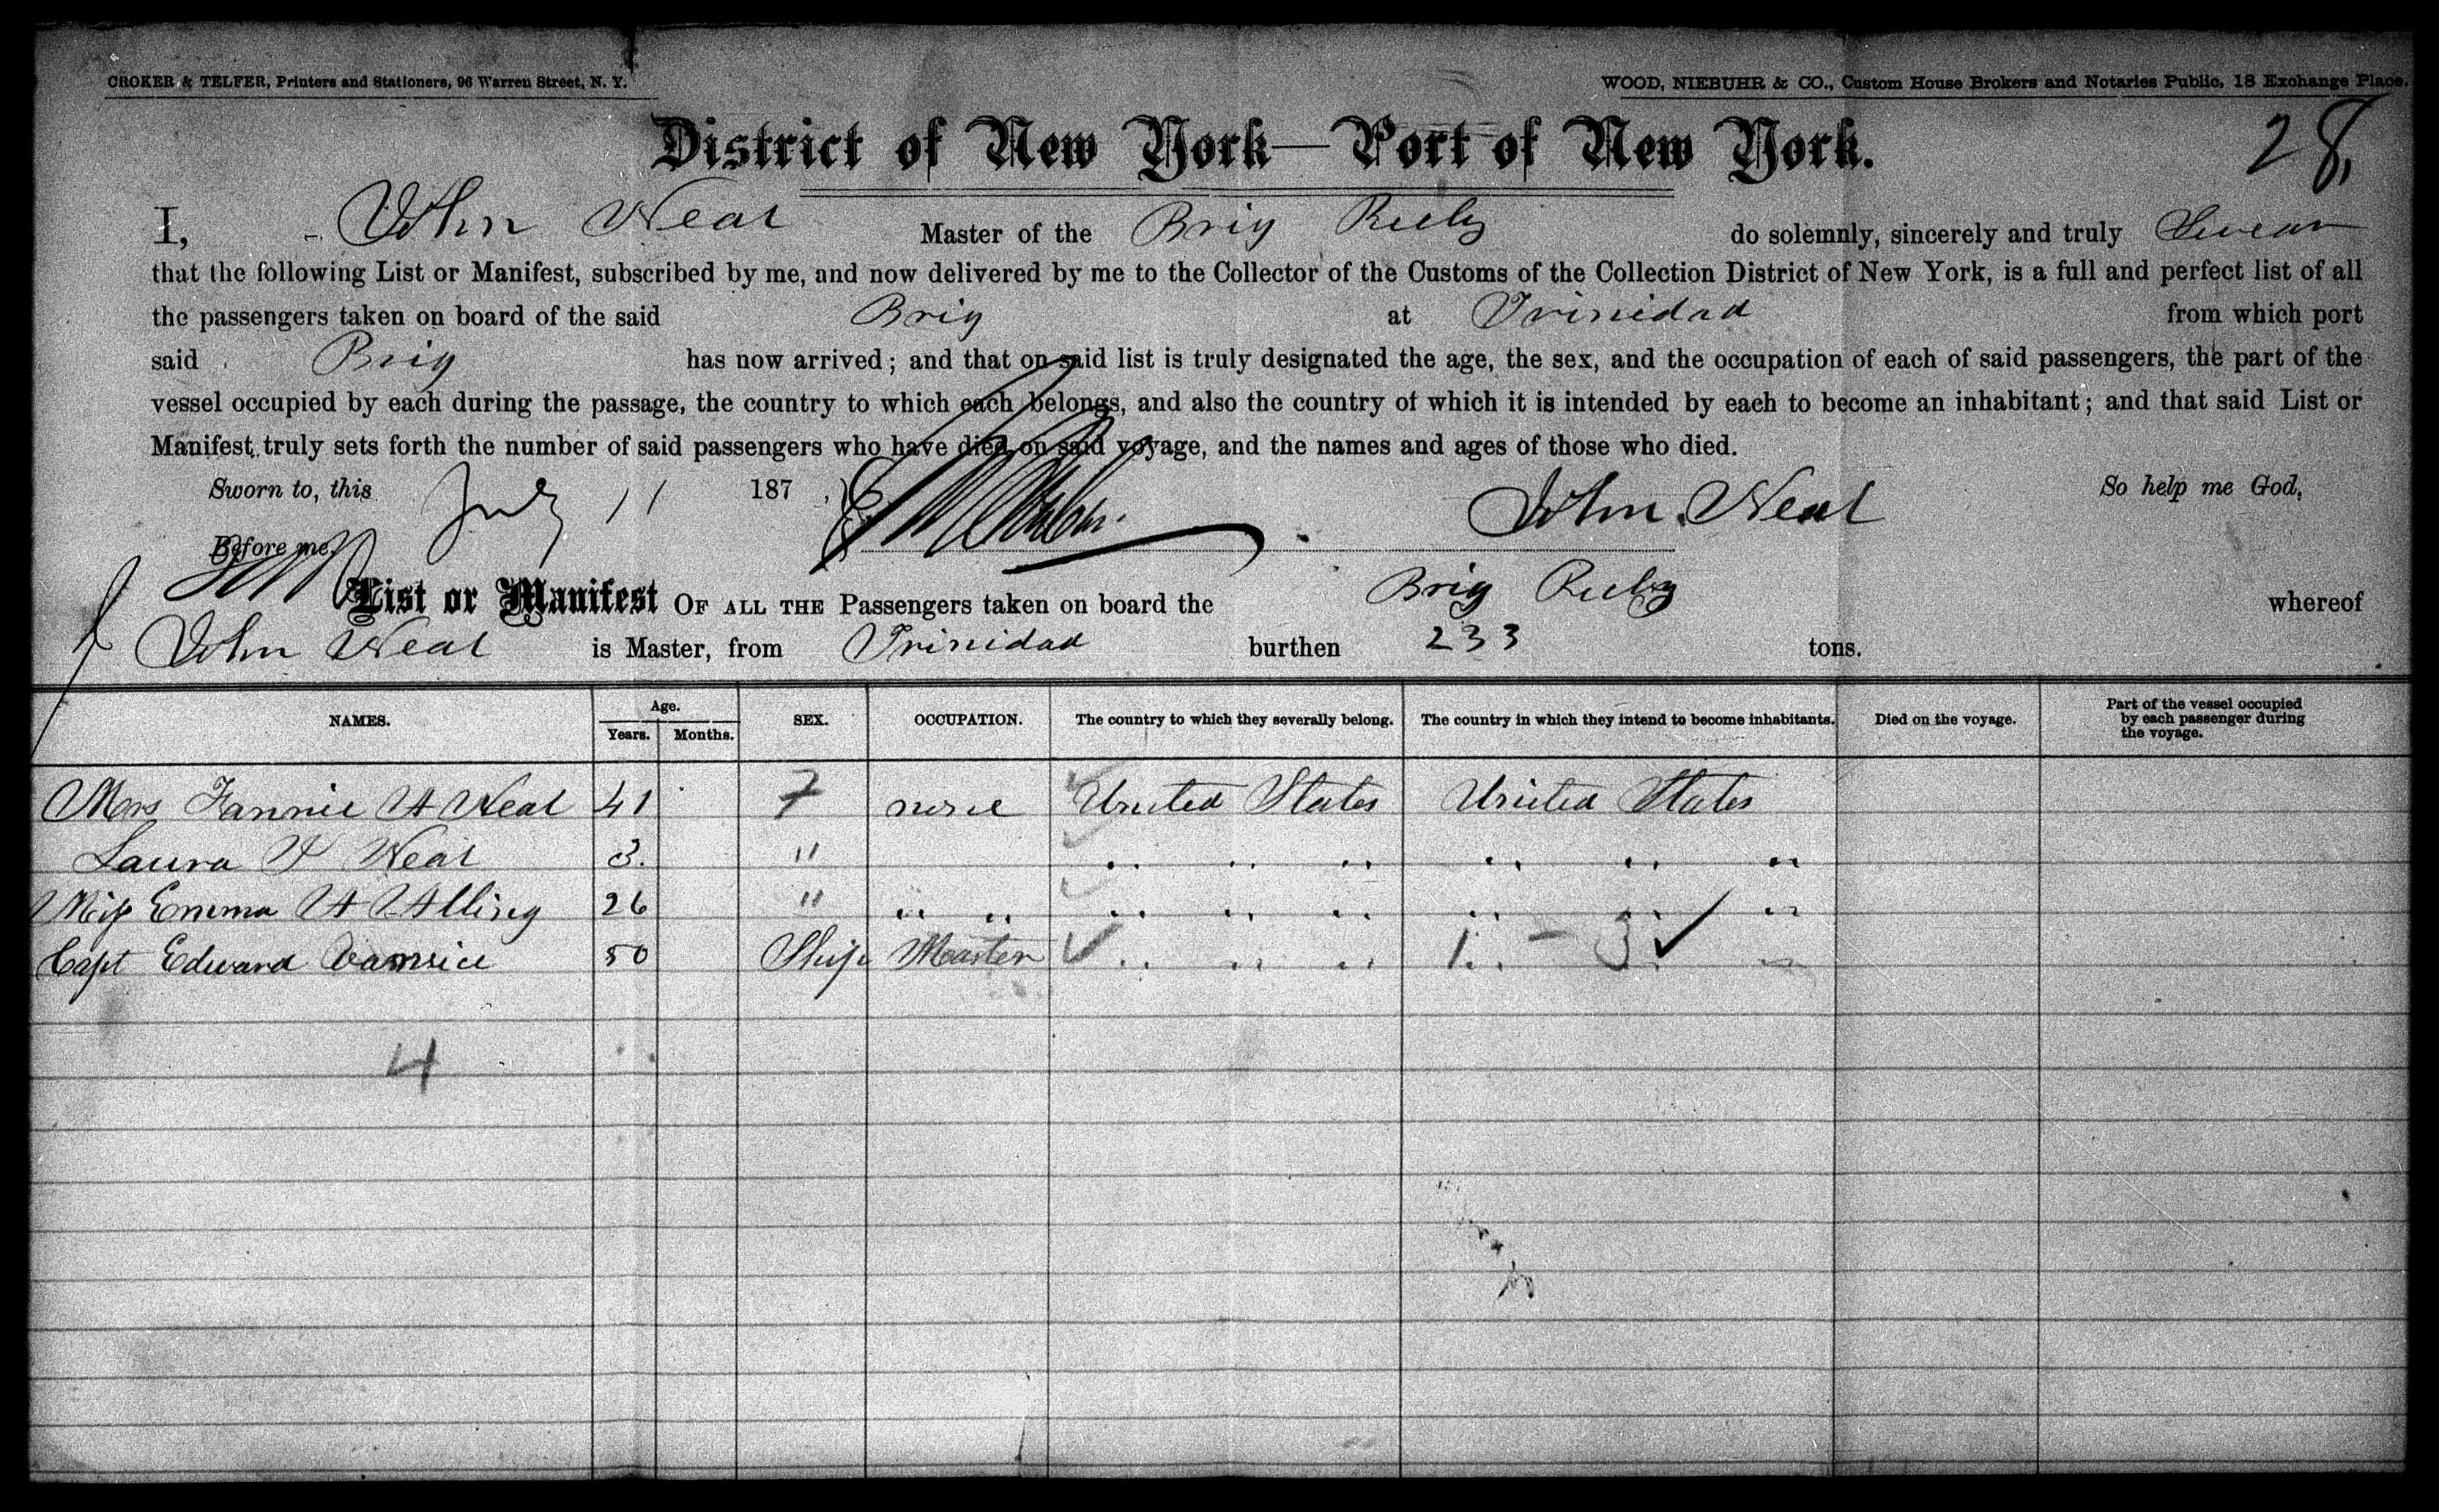 CROKER & TELFER, Printers and Stationers, 96 Warren Street, N. Y.
WOOD, NIEBUHR & CO., Custom House Brokers and Notaries Public, 18 Exchange Place.
District of New York—Port of New York.
28,
I, John Neal Master of the Brig Ruby do solemnly, sincerely and truly Swear
that the following List or Manifest, subscribed by me, and now delivered by me to the Collector of the Customs of the Collection District of New York, is a full and perfect list of all
the passengers taken on board of the said Brig at Trinidad from which port
said Brig has now arrived; and that on said list is truly designated the age, the sex, and the occupation of each of said passengers, the part of the
vessel occupied by each during the passage, the country to which each belongs, and also the country of which it is intended by each to become an inhabitant; and that said List or
Manifest truly sets forth the number of said passengers who have died on said voyage, and the names and ages of those who died.
Sworn to, this July 11 187 , John Neal So help me God,
Before me,
List or Manifest OF ALL THE Passengers taken on board the Brig Ruby whereof
John Neal is Master, from Trinidad burthen 233 tons.
NAMES. Age. Years. Months. SEX. OCCUPATION. The country to which they severally belong. The country in which they intend to become inhabitants. Died on the voyage. Part of the vessel occupied by each passenger during the voyage.
Mrs Fannie A Neal 41 F none United States United States
Laura A Neal 3. " " " " " " "
Miss Emma A Alling 26 " " " " " " " " "
Capt Edward 50 Ship Master " " " 1 - 3 ✓ "
4